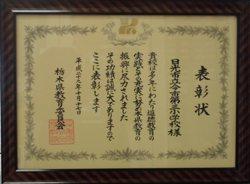 表彰状
日光市立今市第三小学校様
貴校は多年にわたり道徳教育の
実践とその充実に努め本県教育の
振興に尽力されました
その功績は誠に大でありますので
ここに表彰します
平成二十九年十月十七日
栃木県教育委員会